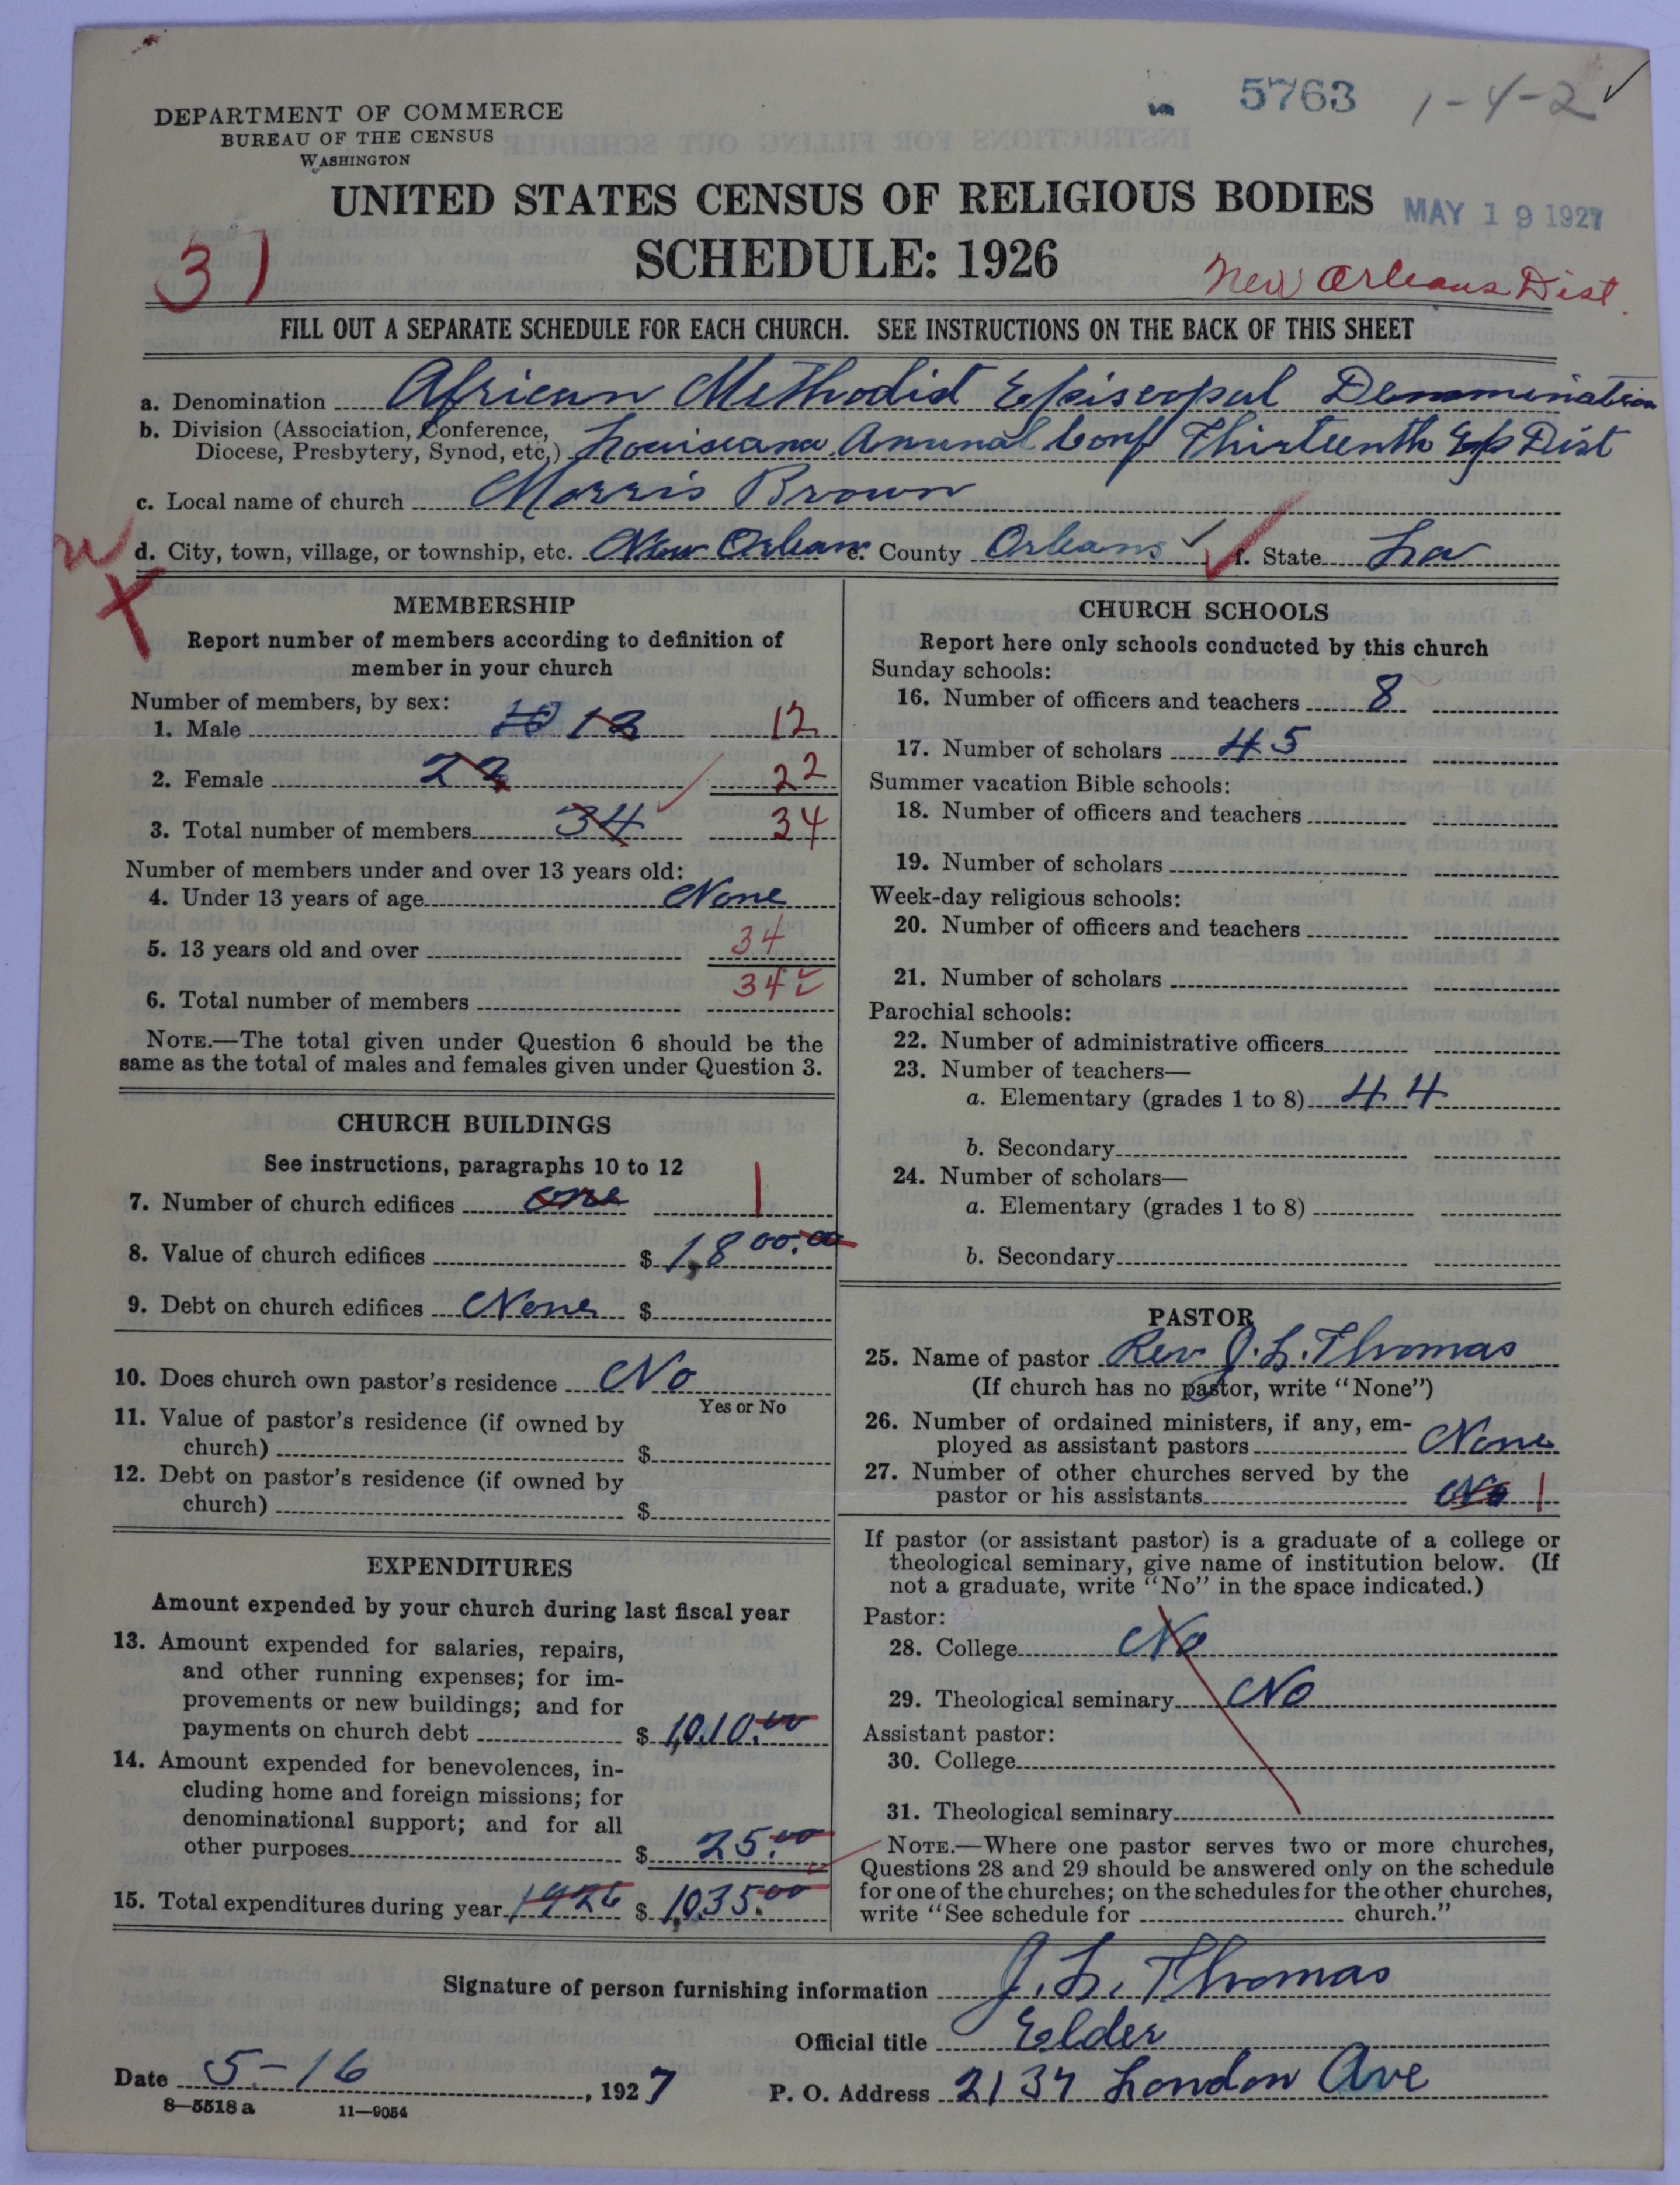 5763 1-4-2 ✓
DEPARTMENT OF COMMERCE
BUREAU OF THE CENSUS
WASHINGTON
UNITED STATES CENSUS OF RELIGIOUS BODIES
MAY 19 1927
SCHEDULE: 1926
31
New Orleans Dist.
FILL OUT A SEPARATE SCHEDULE FOR EACH CHURCH. SEE INSTRUCTIONS ON THE BACK OF THIS SHEET
a. Denomination African Methodist Episcopal Denomination
b. Division (Association, Conference,
Diocese, Presbytery, Synod, etc.) Louisiana Annual Conf Thirteenth Ep Dist
c. Local name of church Morris Brown
d. City, town, village, or township, etc. New Orleans e. County Orleans ✓ f. State La
MEMBERSHIP
Report number of members according to definition of
member in your church
Number of members, by sex:
1. Male 12 12
2. Female 22 22
3. Total number of members 34 34
Number of members under and over 13 years old:
4. Under 13 years of age None
5. 13 years old and over 34
6. Total number of members 34
NOTE.—The total given under Question 6 should be the
same as the total of males and females given under Question 3.
CHURCH BUILDINGS
See instructions, paragraphs 10 to 12
7. Number of church edifices one 1
8. Value of church edifices $ 1,800.00
9. Debt on church edifices None $
10. Does church own pastor's residence No
Yes or No
11. Value of pastor's residence (if owned by
church) $
12. Debt on pastor's residence (if owned by
church) $
EXPENDITURES
Amount expended by your church during last fiscal year
13. Amount expended for salaries, repairs,
and other running expenses; for im-
provements or new buildings; and for
payments on church debt $ 1,010.00
14. Amount expended for benevolences, in-
cluding home and foreign missions; for
denominational support; and for all
other purposes $ 25.00
15. Total expenditures during year 1926 $ 1,035.00
CHURCH SCHOOLS
Report here only schools conducted by this church
Sunday schools:
16. Number of officers and teachers 8
17. Number of scholars 45
Summer vacation Bible schools:
18. Number of officers and teachers
19. Number of scholars
Week-day religious schools:
20. Number of officers and teachers
21. Number of scholars
Parochial schools:
22. Number of administrative officers
23. Number of teachers—
a. Elementary (grades 1 to 8) 44
b. Secondary
24. Number of scholars—
a. Elementary (grades 1 to 8)
b. Secondary
PASTOR
25. Name of pastor Rev J. L. Thomas
(If church has no pastor, write "None")
26. Number of ordained ministers, if any, em-
ployed as assistant pastors None
27. Number of other churches served by the
pastor or his assistants No 1
If pastor (or assistant pastor) is a graduate of a college or
theological seminary, give name of institution below. (If
not a graduate, write "No" in the space indicated.)
Pastor:
28. College No
29. Theological seminary No
Assistant pastor:
30. College
31. Theological seminary
NOTE.—Where one pastor serves two or more churches,
Questions 28 and 29 should be answered only on the schedule
for one of the churches; on the schedules for the other churches,
write "See schedule for church."
Signature of person furnishing information J. L. Thomas
Official title Elder
Date 5-16, 1927 P. O. Address 2137 London Ave
8—5518 a 11—9054